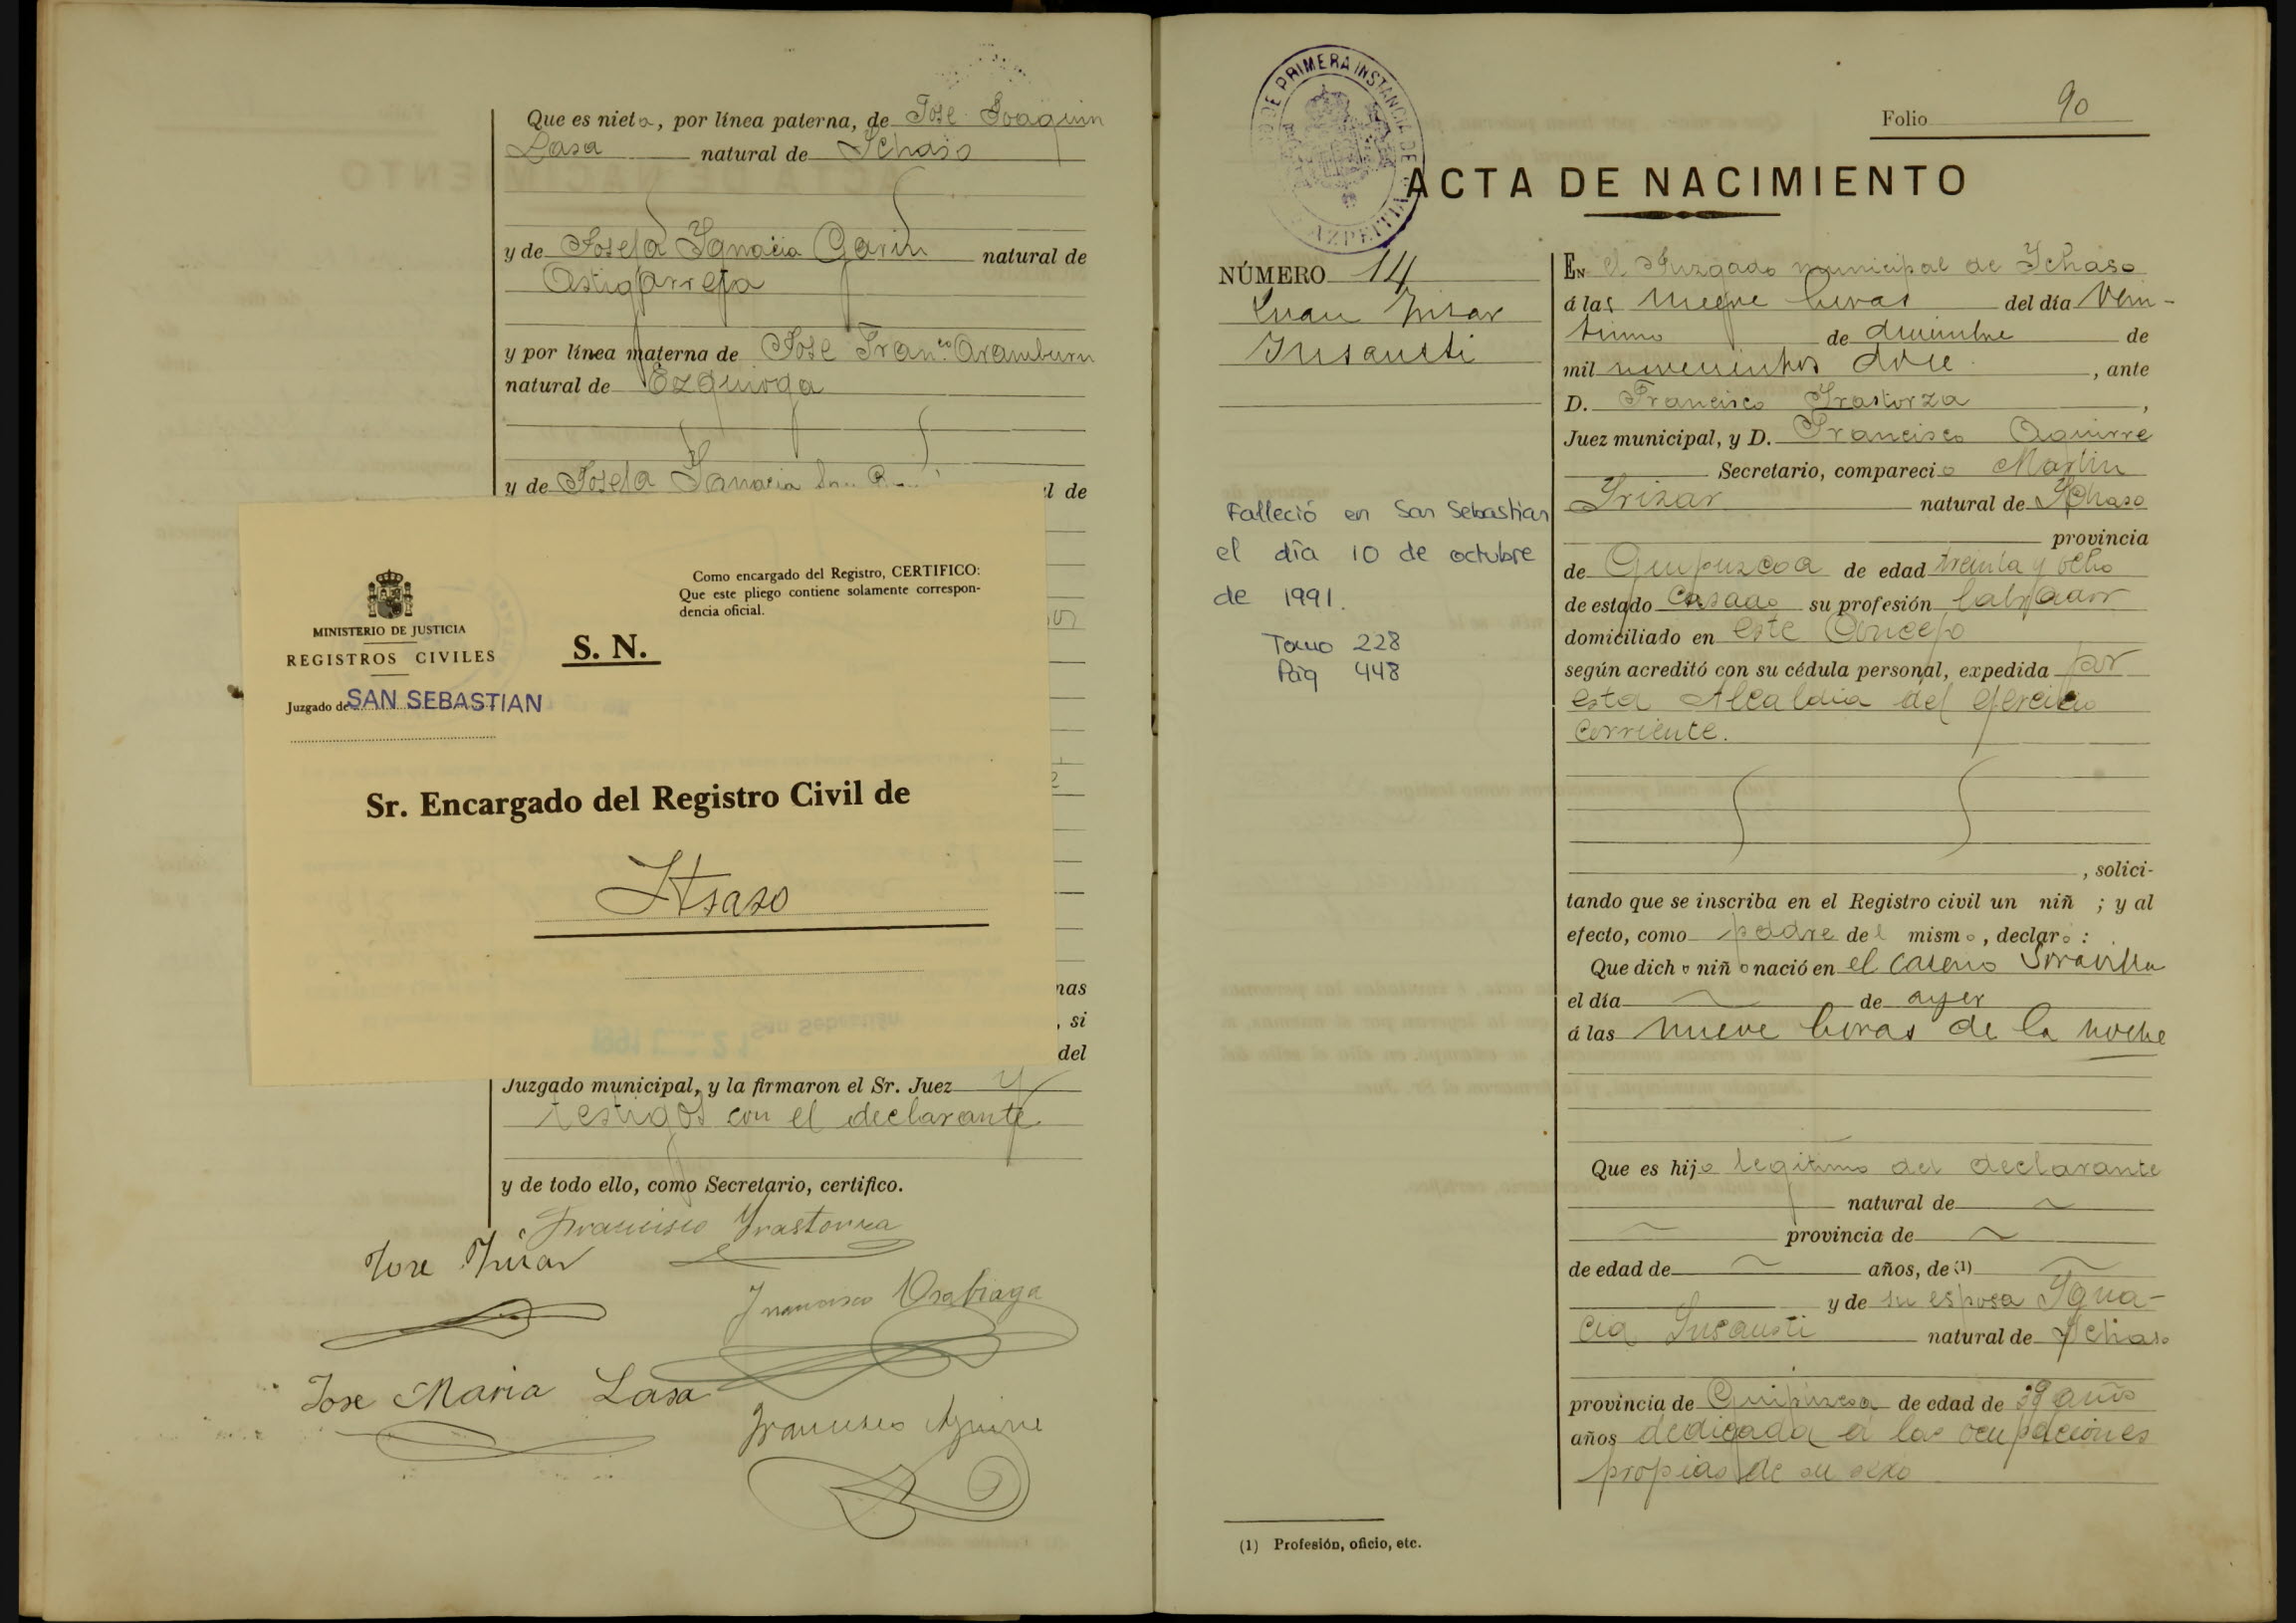 Que es nieta, por línea paterna, de Jose Joaquin
Lasa natural de Ichaso
y de Josefa Ignacia Garin natural de
Astigarreta
y por línea materna de Jose Fran.co Aramburu
natural de Ezquioga
y de Josefa Ignacia
l de
MINISTERIO DE JUSTICIA
REGISTROS CIVILES
Juzgado de SAN SEBASTIAN
S. N.
Como encargado del Registro, CERTIFICO:
Que este pliego contiene solamente correspon-
dencia oficial.
Sr. Encargado del Registro Civil de
Itsaso
nas
, si
del
Juzgado municipal, y la firmaron el Sr. Juez y
testigos con el declarante
y de todo ello, como Secretario, certifico.
Francisco Yrastorza
Jose Irizar
Francisco Osabiaga
Jose Maria Lasa
Francisco Aguirre
DE PRIMERA INSTANCIA DE AZPEITIA
Folio 90
ACTA DE NACIMIENTO
NÚMERO 14
Juan Irizar
Insausti
Falleció en San Sebastian
el día 10 de octubre
de 1991.
Tomo 228
Pág 448
EN el Juzgado municipal de Ichaso
á las nueve horas del día vein-
tiuno de diciembre de
mil novecientos doce , ante
D. Francisco Irastorza ,
Juez municipal, y D. Francisco Aguirre
Secretario, compareció Martin
Irizar natural de Ichaso
provincia
de Guipuzcoa de edad treinta y ocho
de estado casado su profesión labrador
domiciliado en este Concejo
según acreditó con su cédula personal, expedida por
esta Alcaldia del ejercicio
corriente.
, solici-
tando que se inscriba en el Registro civil un niñ ; y al
efecto, como padre del mismo, declaró:
Que dicho niño nació en el caserio
el día de ayer
á las nueve horas de la noche
Que es hijo legitimo del declarante
natural de
provincia de
de edad de años, de (1)
y de su esposa Igna-
cia Insausti natural de Ichaso
provincia de Guipuzcoa de edad de 39 años
años dedicada á las ocupaciones
propias de su sexo
(1) Profesión, oficio, etc.